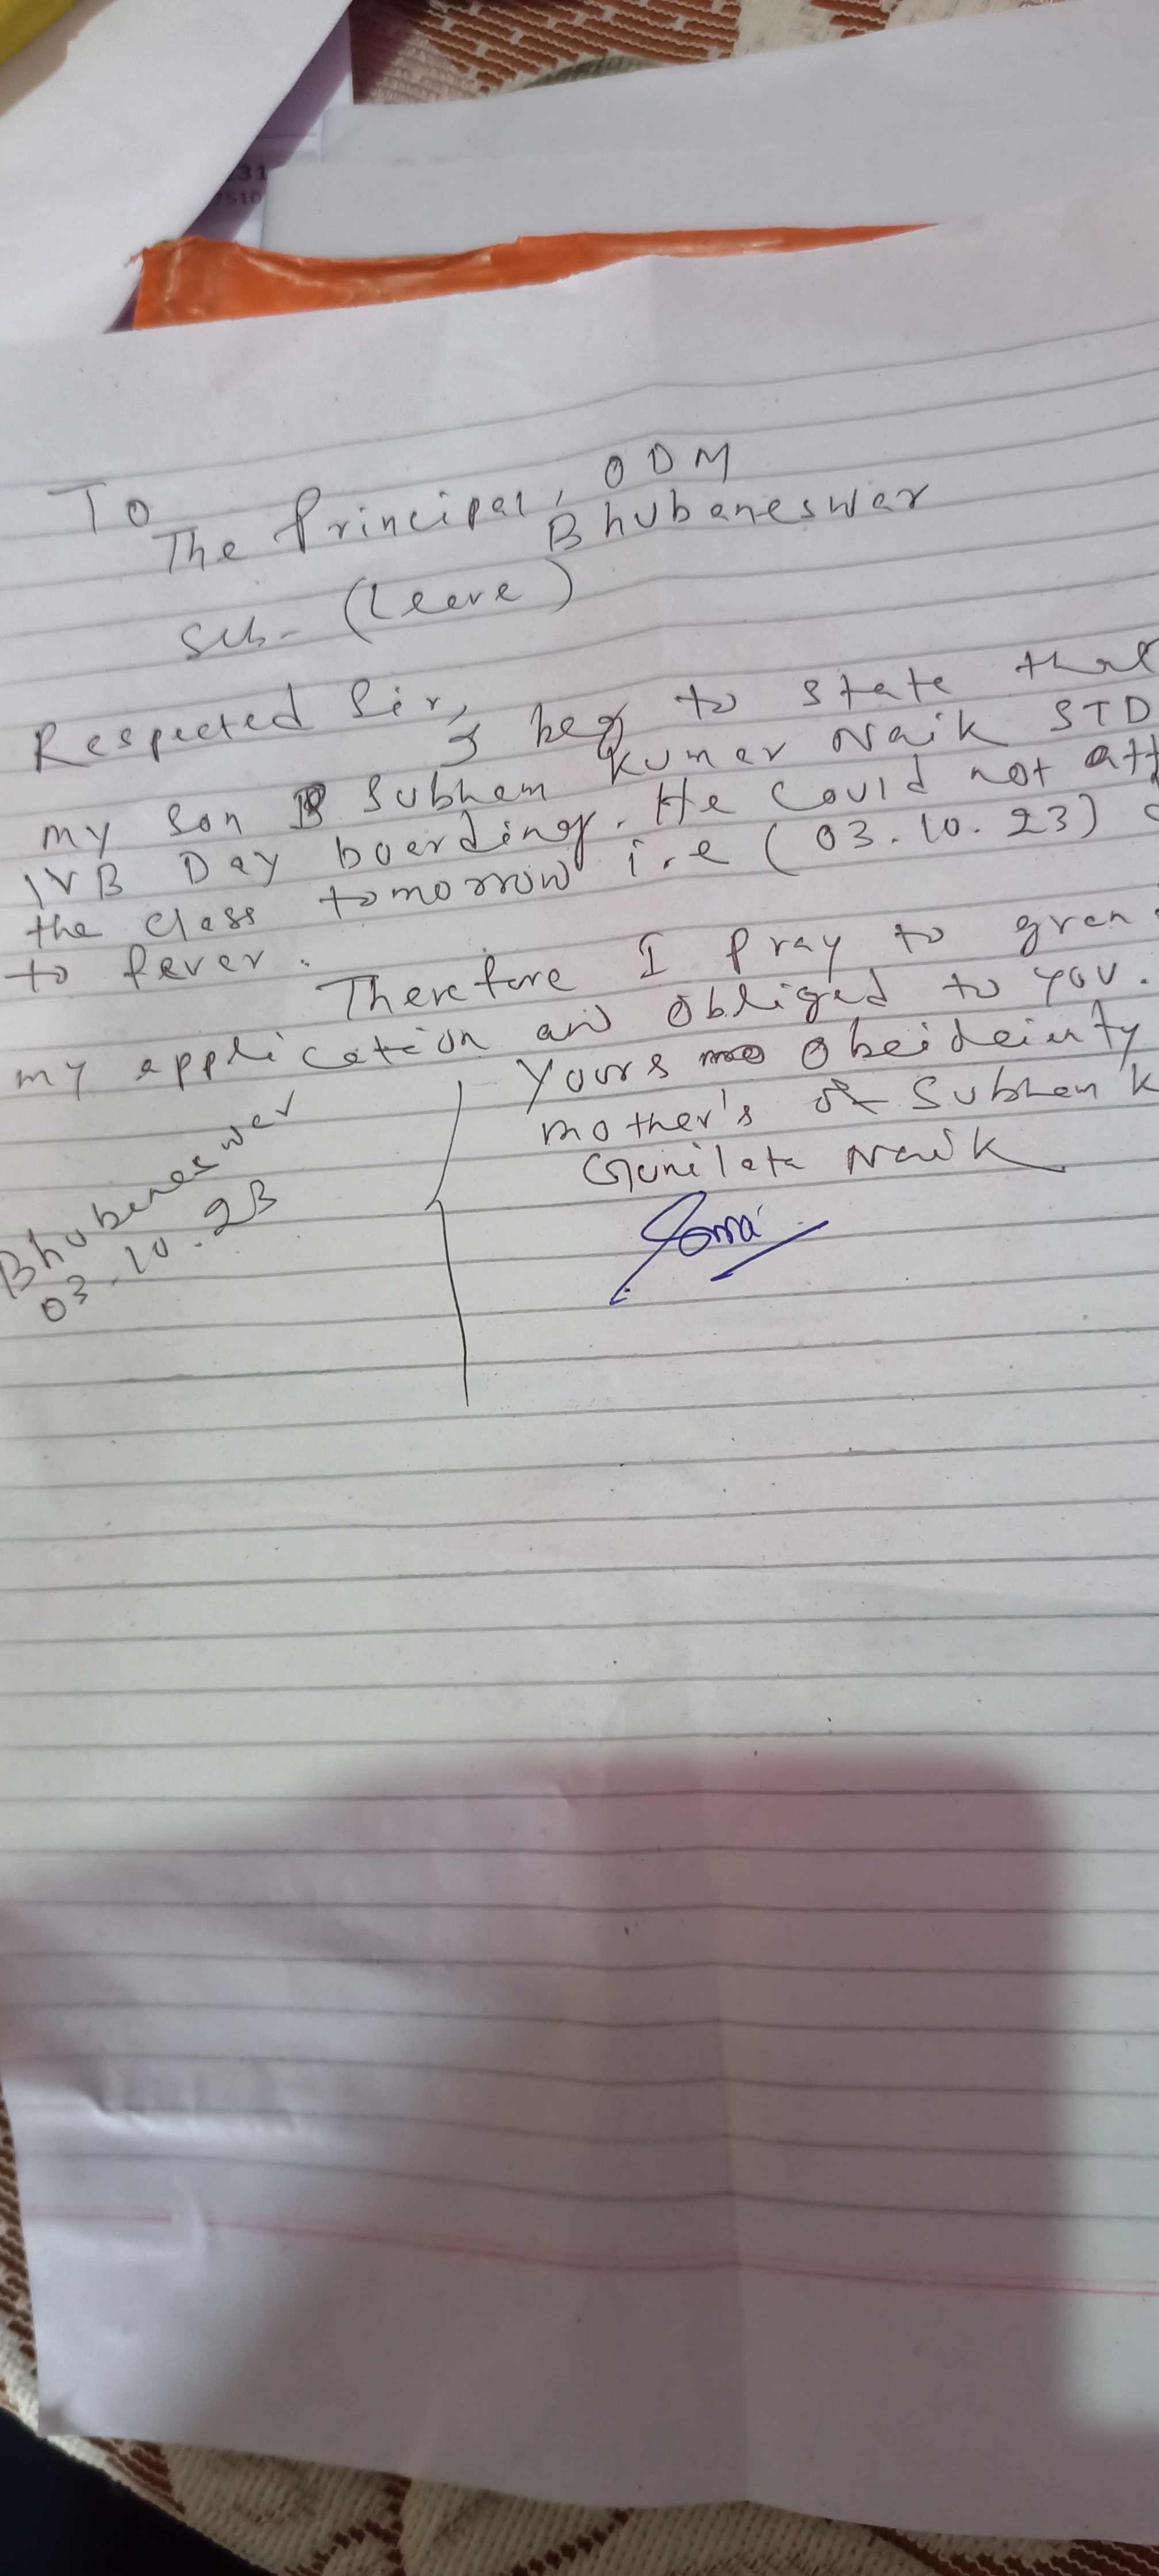 31
7510
To
The Principal, ODM
Bhubaneswar
Sub- (Leave)
Respected Sir,
I beg to state that
my son Subham Kumar Naik STD
IVB Day boarding. He could not att
the class tomorrow i.e (03.10.23)
to fever.
Therefore I pray to gran
my application and obliged to you.
Yours obeideinty
mother's of Subham K
Gunilata Naik
Bhubaneswar
03.10.23